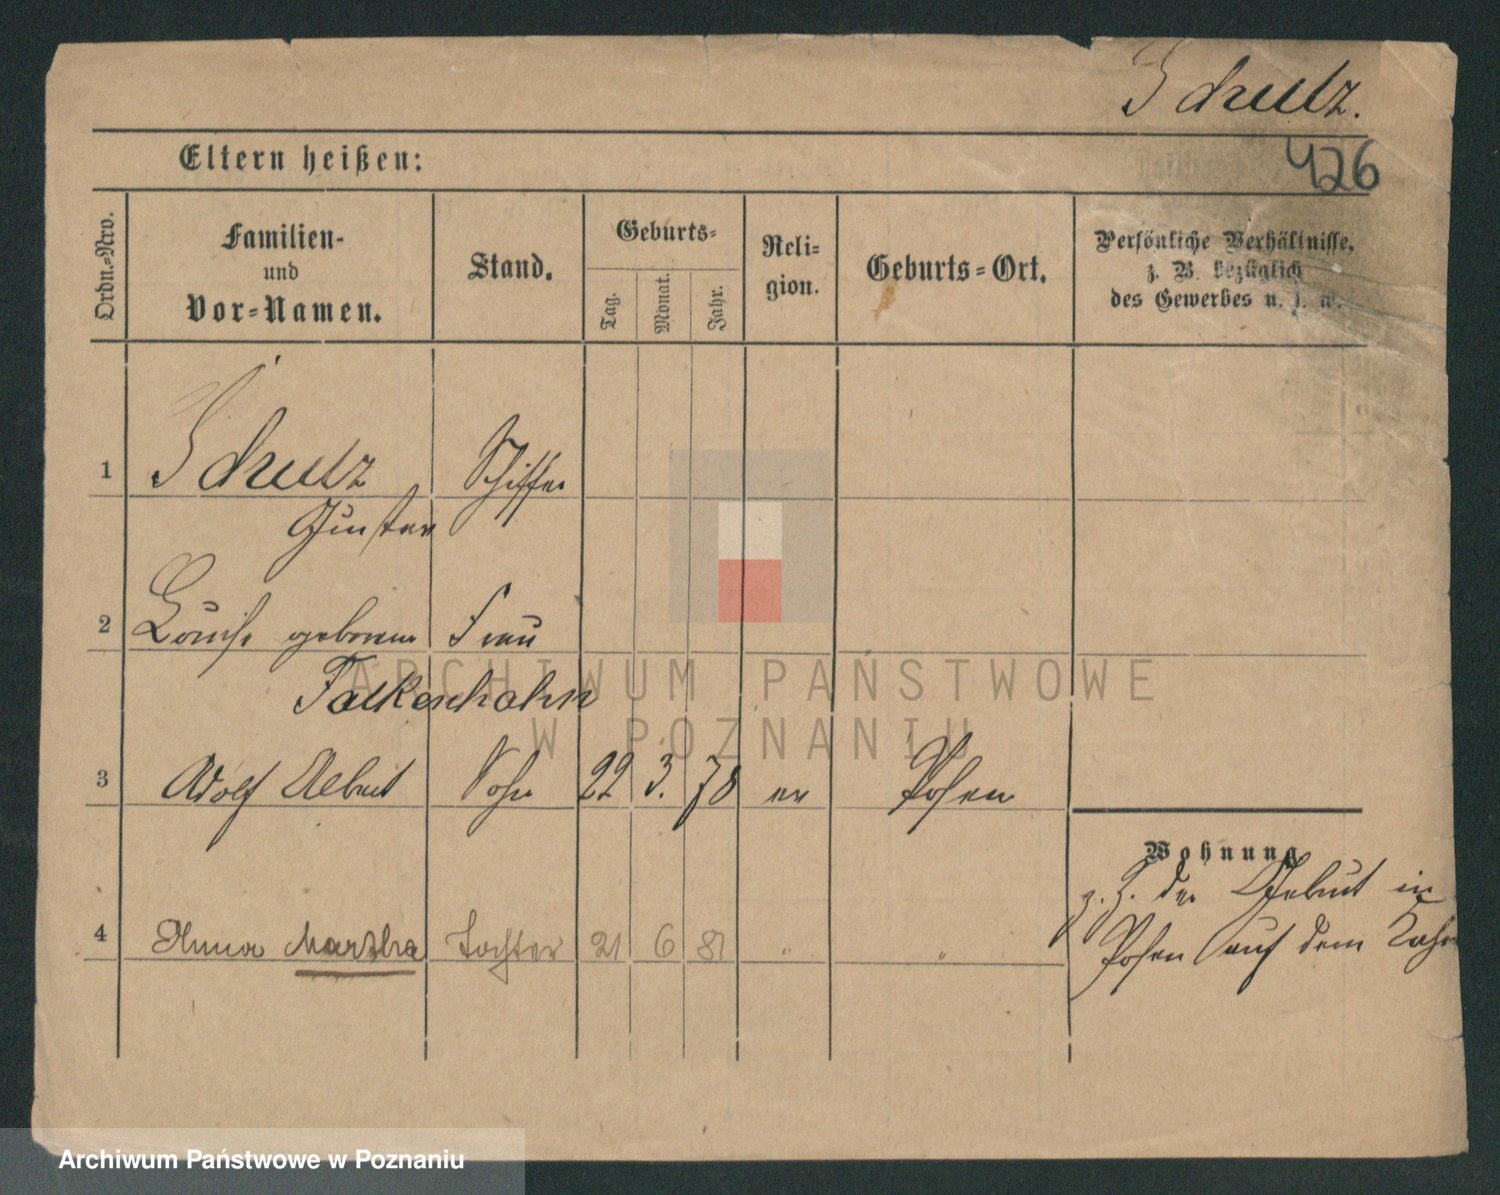 Schulz.
426
Eltern heißen:
Ordn.=Nro.
Familien-
und
Vor=Namen.
Stand.
Geburts=
Tag.
Monat.
Jahr.
Reli=
gion.
Geburts=Ort.
Persönliche Verhältnisse,
z. B. bezüglich
des Gewerbes u. s. w.
1 Schulz Schiffer
Gustav
2 Louise geborene Frau
Falkenhahn
3 Adolf Albert Sohn 22 3. 78 ev Posen
4 Anna Martha Tochter 21 6 81 " "
Wohnung
z. Z. der Geburt in
Posen auf dem Kahn
ARCHIWUM PAŃSTWOWE
W POZNANIU
Archiwum Państwowe w Poznaniu